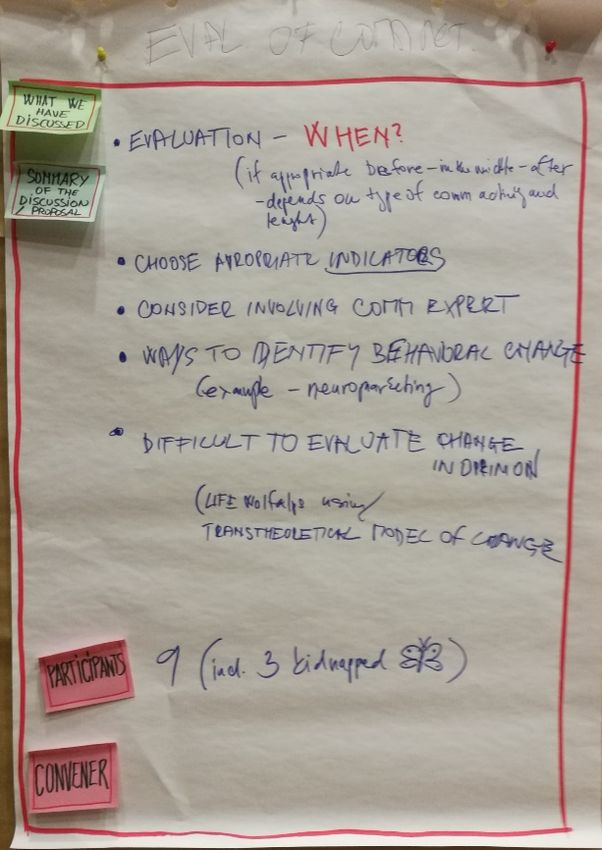 EVAL OF COMMCT.
WHAT WE
HAVE
DISCUSSED
SUMMARY
OF THE
DISCUSSION
/ PROPOSAL
• EVALUATION – WHEN?
(if appropriate before – in the middle – after
– depends on type of comm activity and
lenght)
• CHOOSE APROPRIATE INDICATORS
• CONSIDER INVOLVING COMM EXPERT
• WAYS TO IDENTIFY BEHAVIORAL CHANGE
(example – neuromarketing)
• DIFFICULT TO EVALUATE CHANGE
IN OPINION
(LIFE Wolfalps using
TRANSTHEORETICAL MODEL OF CHANGE
PARTICIPANTS
9 (incl. 3 kidnapped)
CONVENER